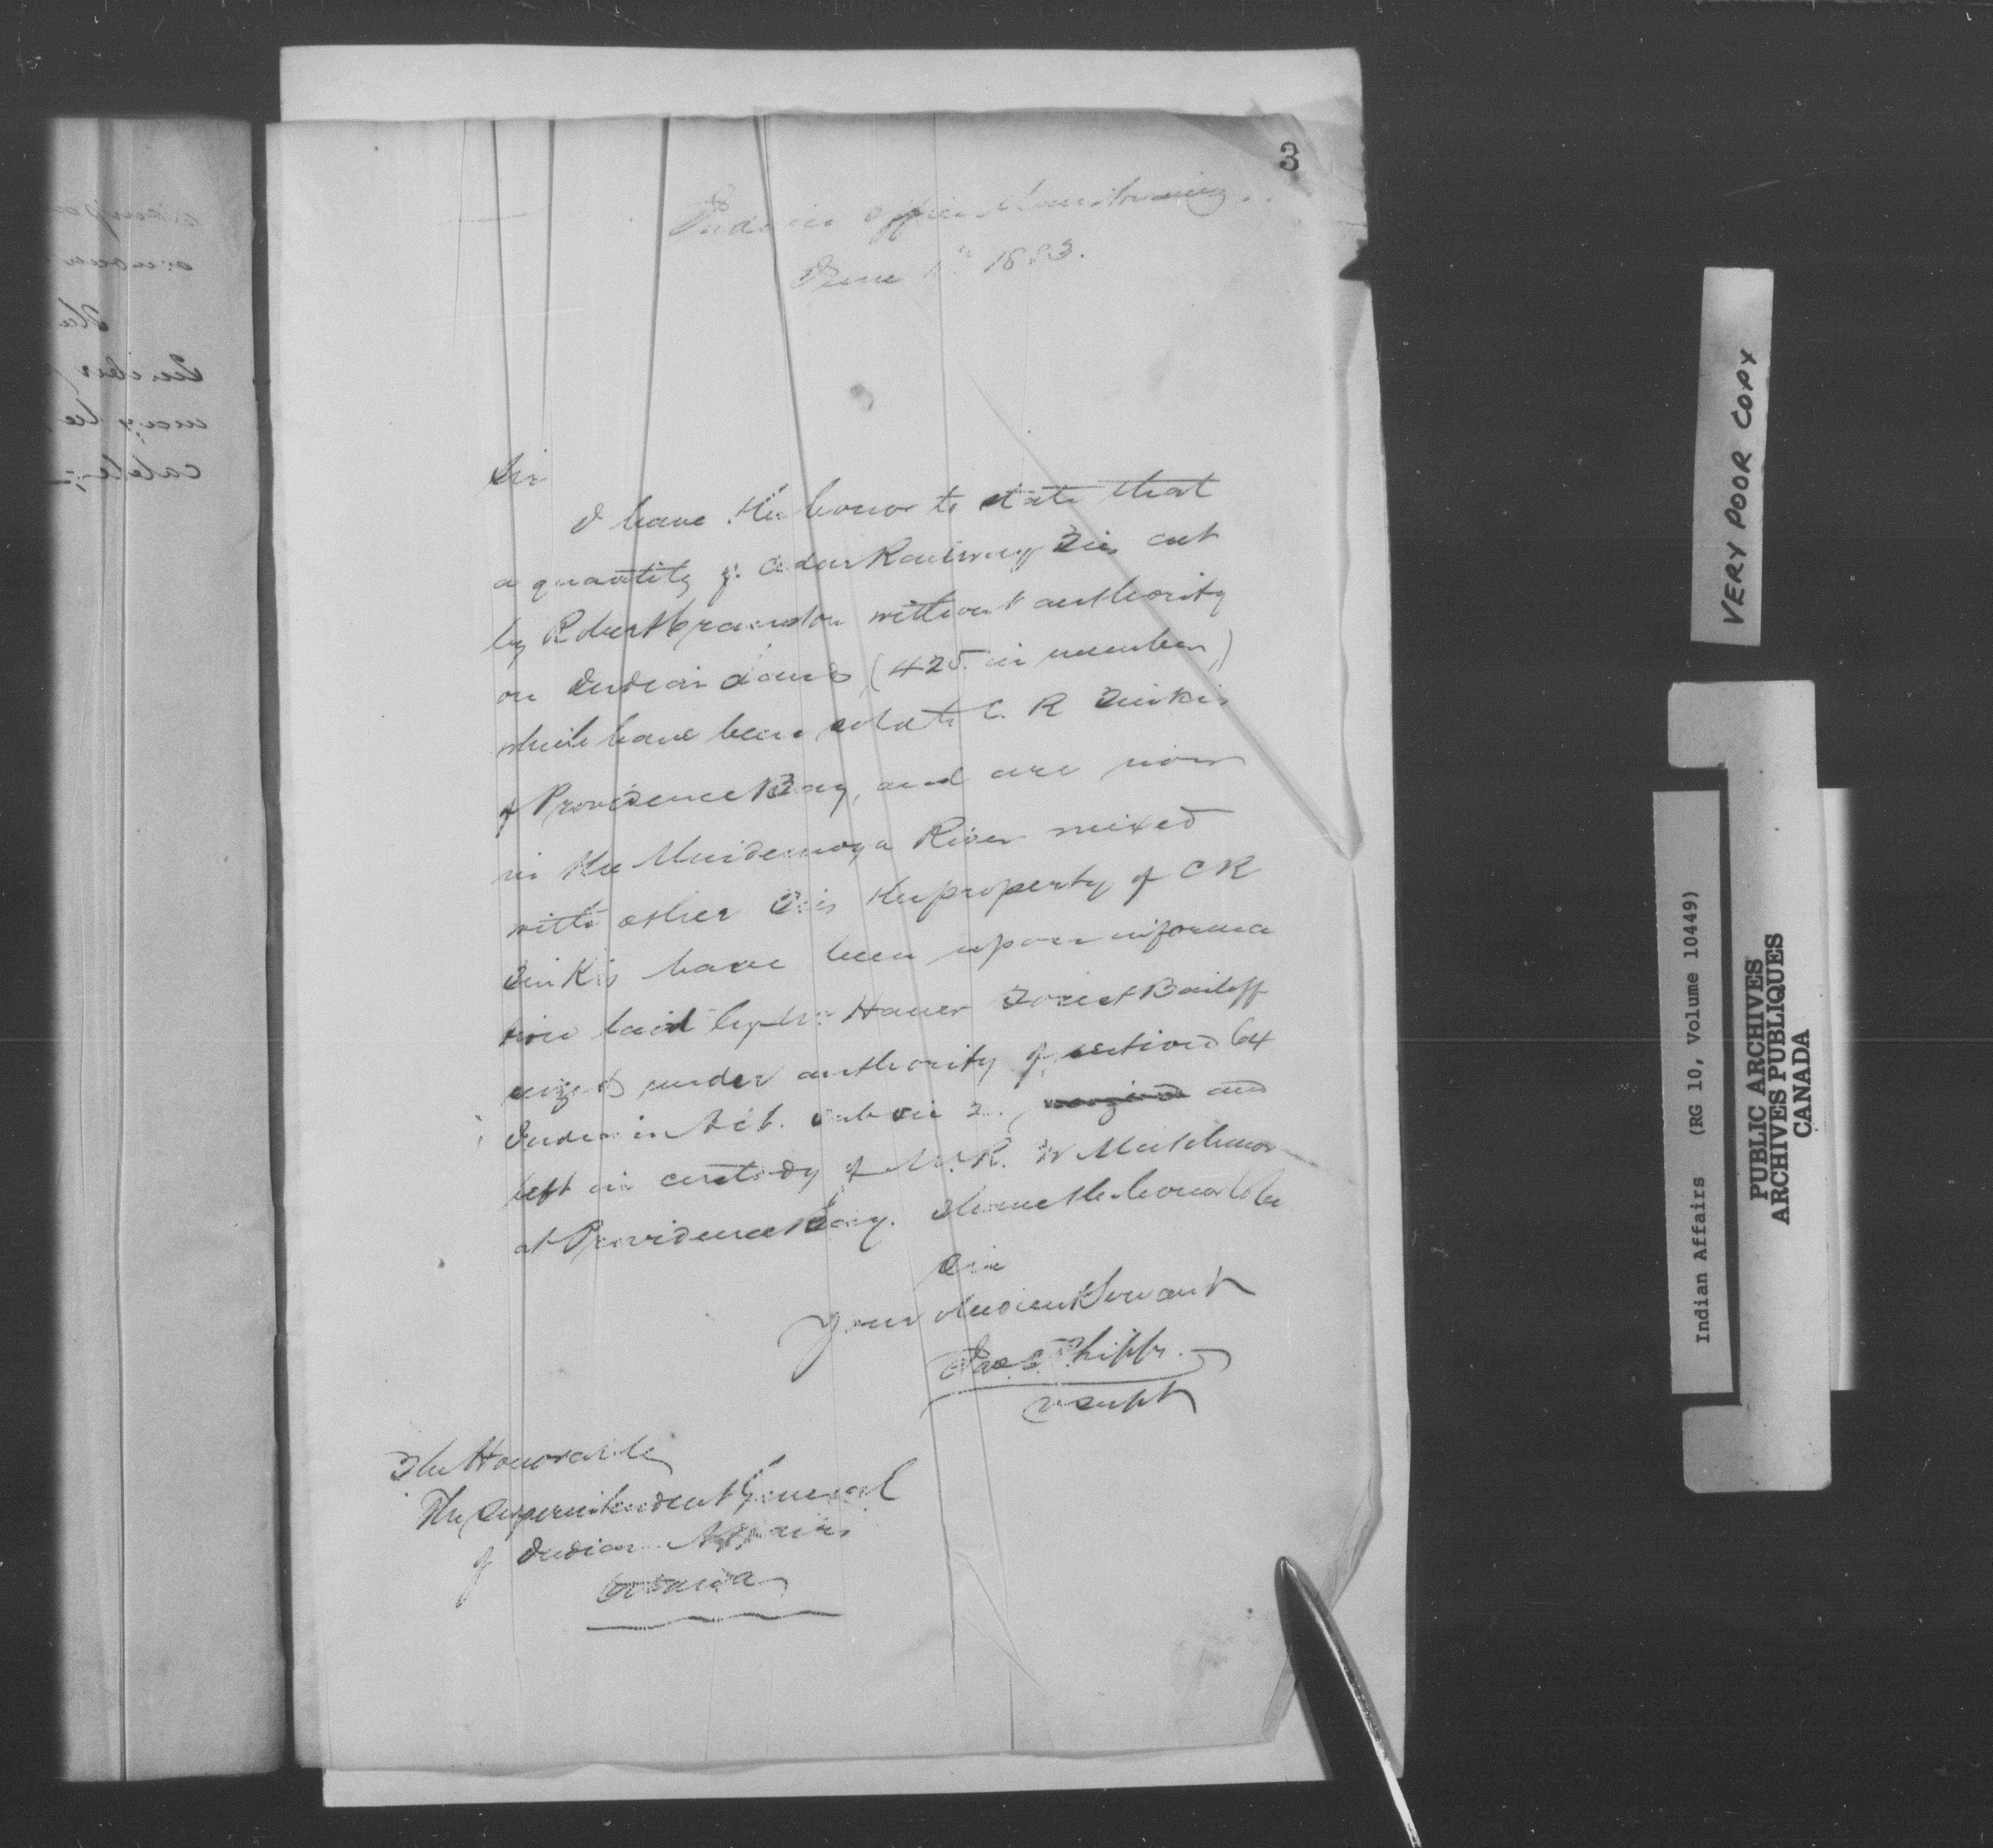 3
Indian Office Manitowaning
June 1883.
Sir
I have the honor to state that
a quantity of Cedar Railway Ties cut
by Robert without authority
on Indian Lands (425 in number)
which have been sold to C. R
of Providence Bay, and are now
in the Mindemoya River mixed
with other Ties the property of C R
have been upon informa
tion laid by Mr Forest Bailiff
seized under authority of section 64
Indian Act. sub sec 2. and
left in custody of Mr. R.
at Providence Bay. I have the honor to be
Sir
Your obedient Servant
Jas. C. Phipps.
V Supt
The Honorable
The Superintendent General
of Indian Affairs
Ottawa
VERY POOR COPY
Indian Affairs (RG 10, Volume 10449)
PUBLIC ARCHIVES
ARCHIVES PUBLIQUES
CANADA